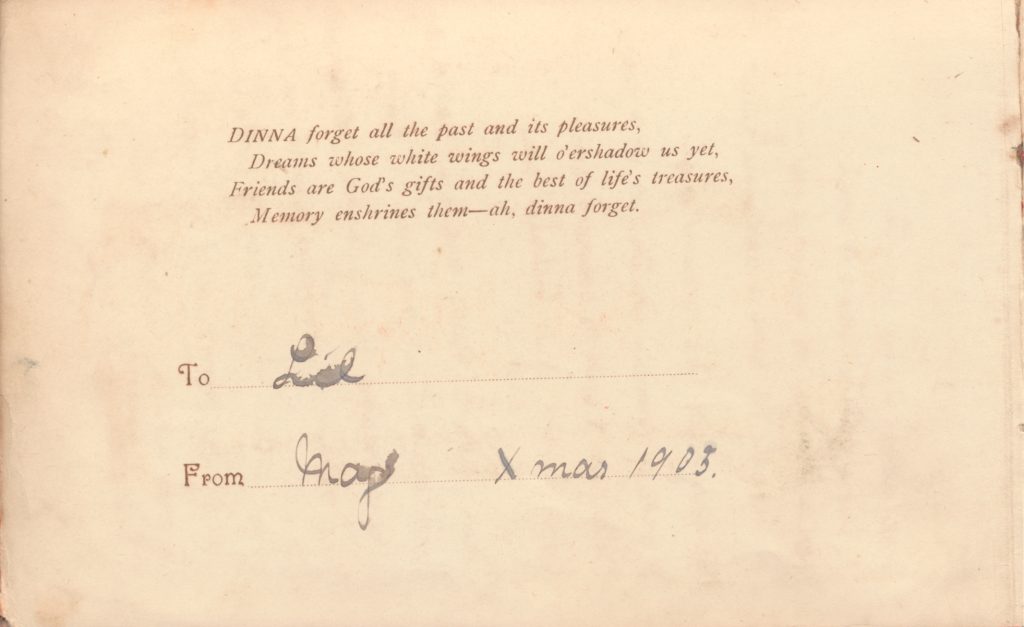 DINNA forget all the past and its pleasures,
Dreams whose white wings will o'ershadow us yet,
Friends are God's gifts and the best of life's treasures,
Memory enshrines them—ah, dinna forget.
To Lil
From May Xmas 1903.